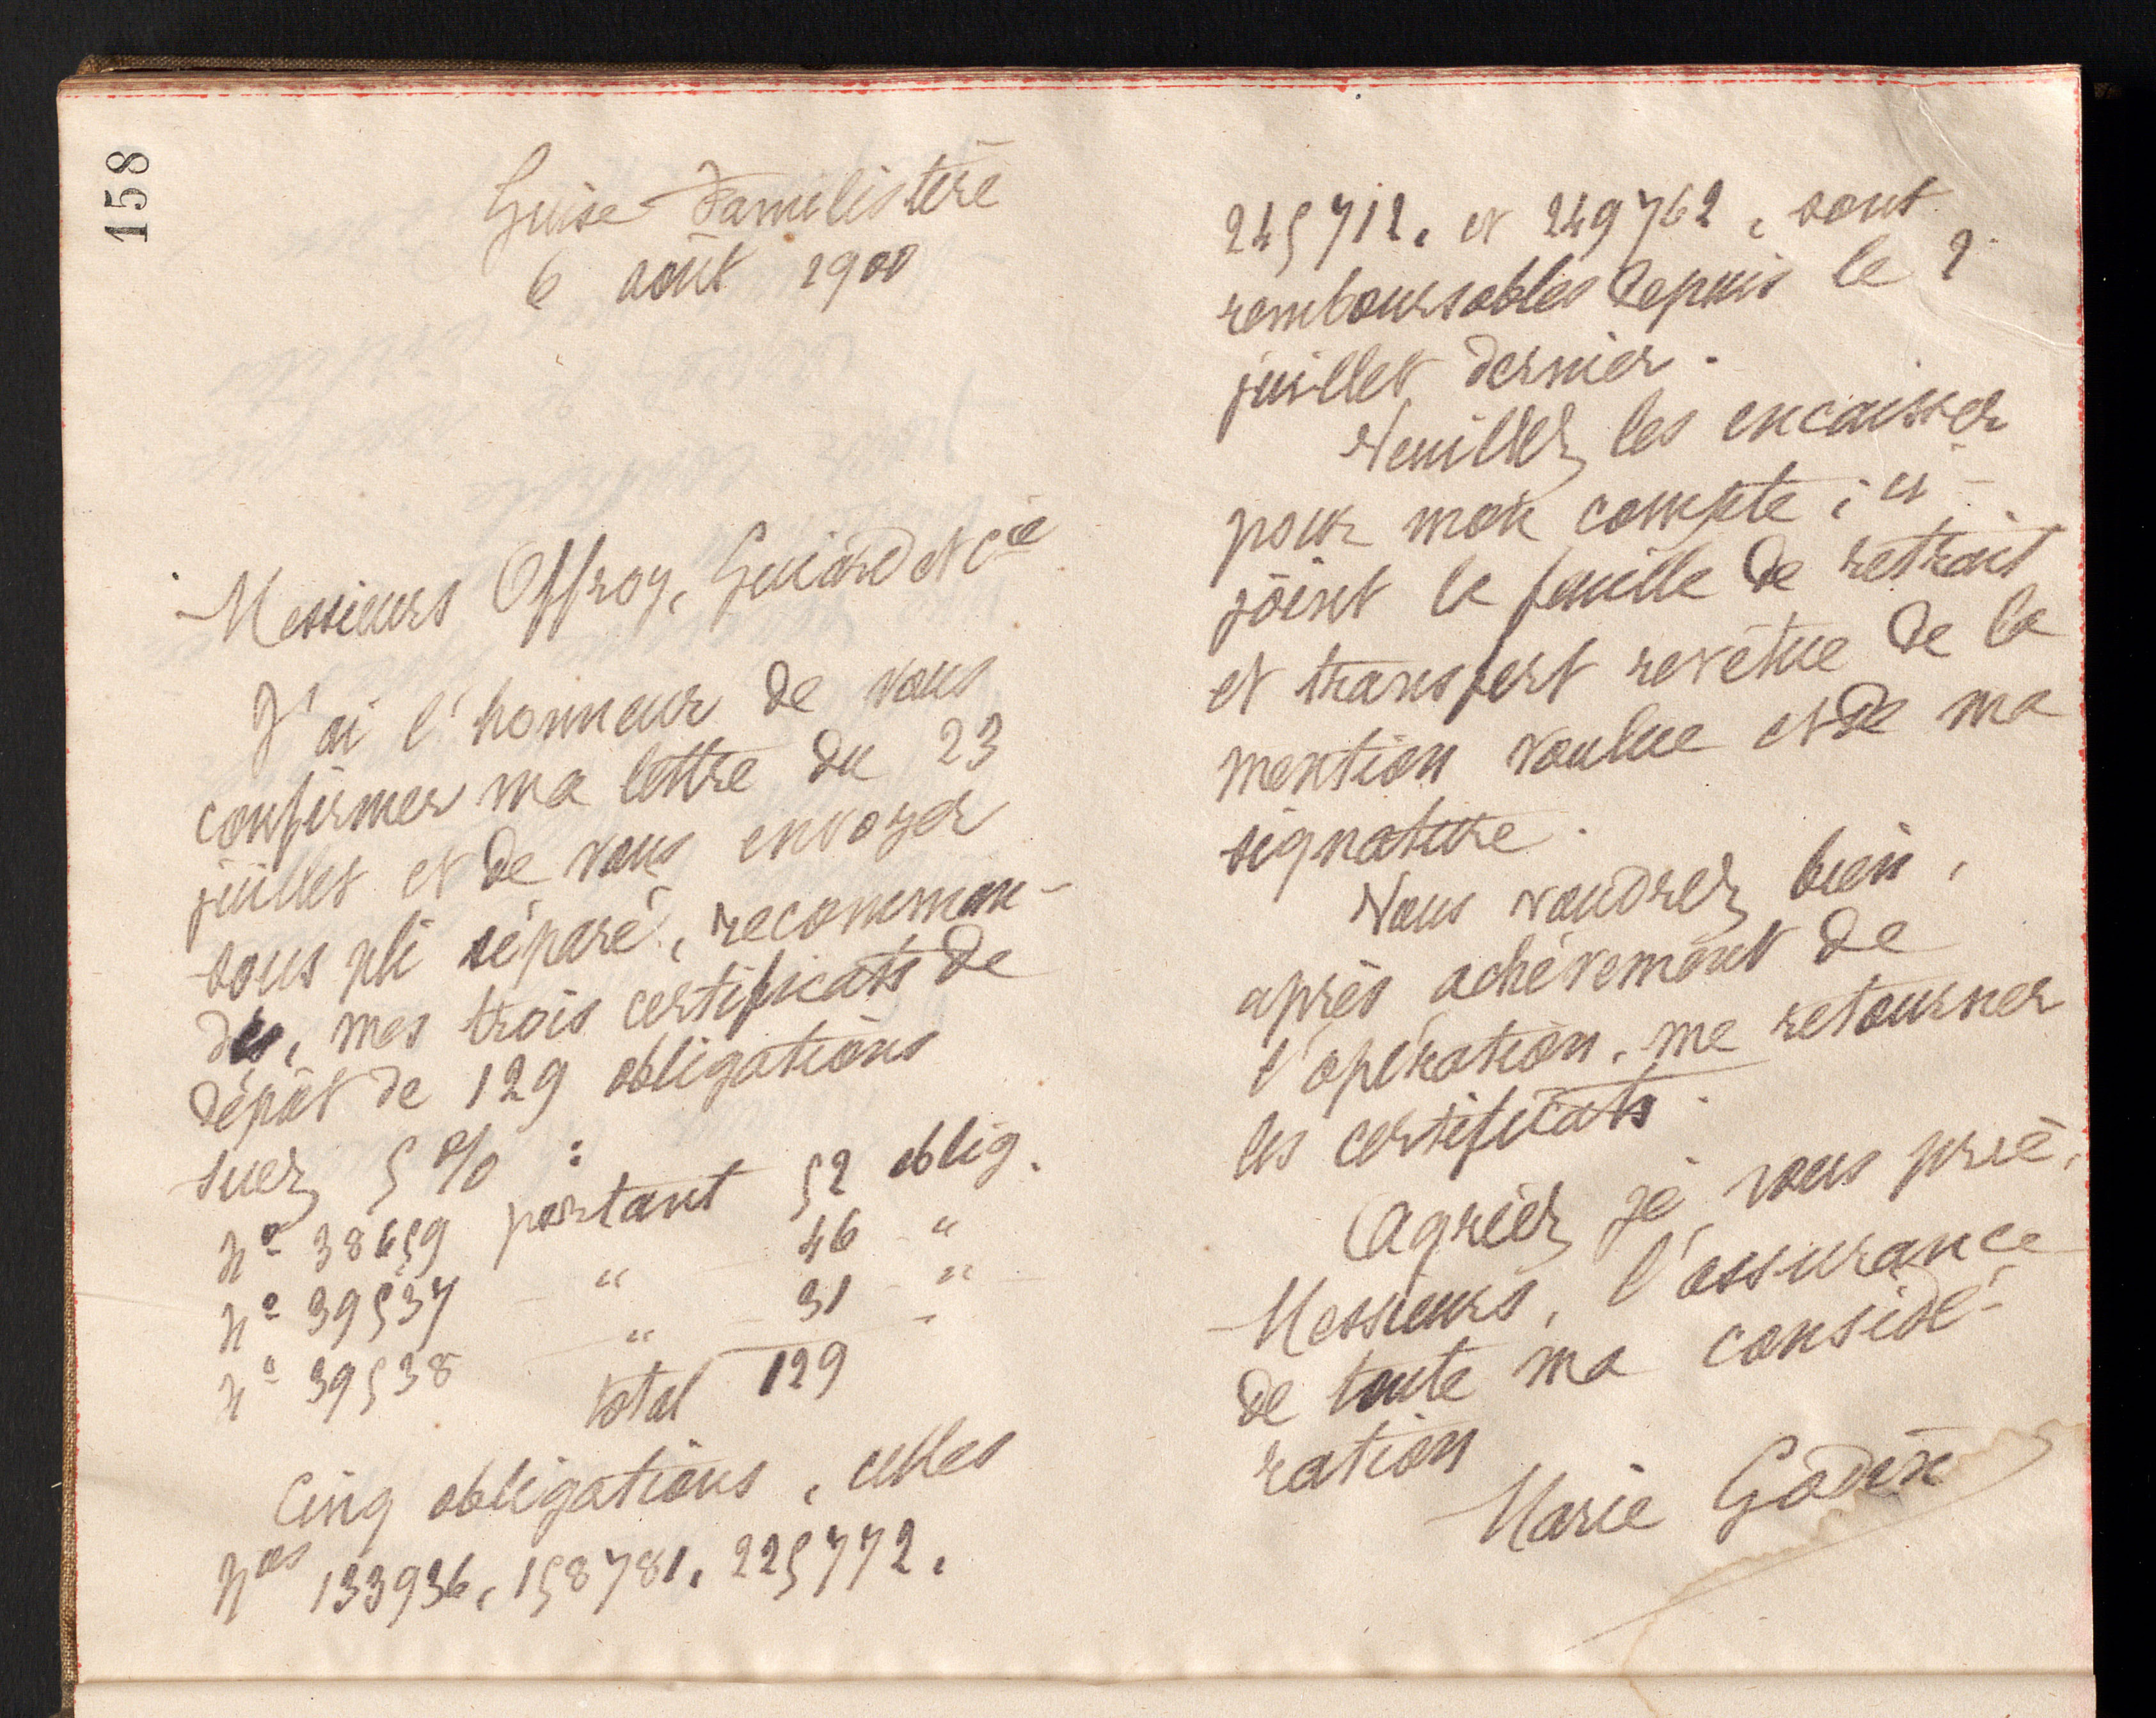 158
Guise Familistère
6 août 1900
Messieurs Offroy, Guiard et Cie
J'ai l'honneur de vous
confirmer ma lettre du 23
juillet et de vous envoyer
sous pli séparé, recomman-
dés, mes trois certificats de
dépôt de 129 obligations
Suez 5 % :
No 38659 portant 52 oblig.
No 39537 " 46 "
No 39538 " 31 "
total 129
Cinq obligations, celles
Nos 133936, 158781, 225772,
245712, et 249762, sont
remboursables depuis le 2
juillet dernier.
Veuillez les encaisser
pour mon compte ; ci-
joint la feuille de retrait
et transfert revêtue de la
mention voulue et de ma
signature.
Vous voudrez bien,
après achèvement de
l'opération, me retourner
les certificats.
Agréez je vous prie,
Messieurs, l'assurance
de toute ma considé-
ration
Marie Godin